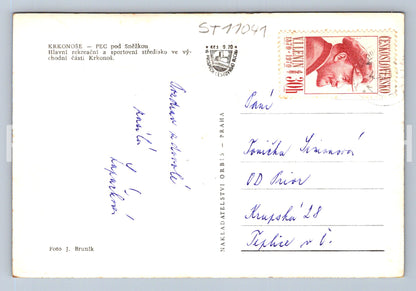 ST11041
KRKONOŠE — PEC pod Sněžkou
Hlavní rekreační a sportovní středisko ve vý-
chodní části Krkonoš.
Pozdrav z dovolé
zasílá
Foto J. Brunik
NAKLADATELSTVÍ ORBIS - PRAHA
ČESKOSLOVENSKO
V.I.LENIN
1870-1970
30h
Paní
Tonička Simonová
OD Prior
Krupská 28
Teplice v Č.